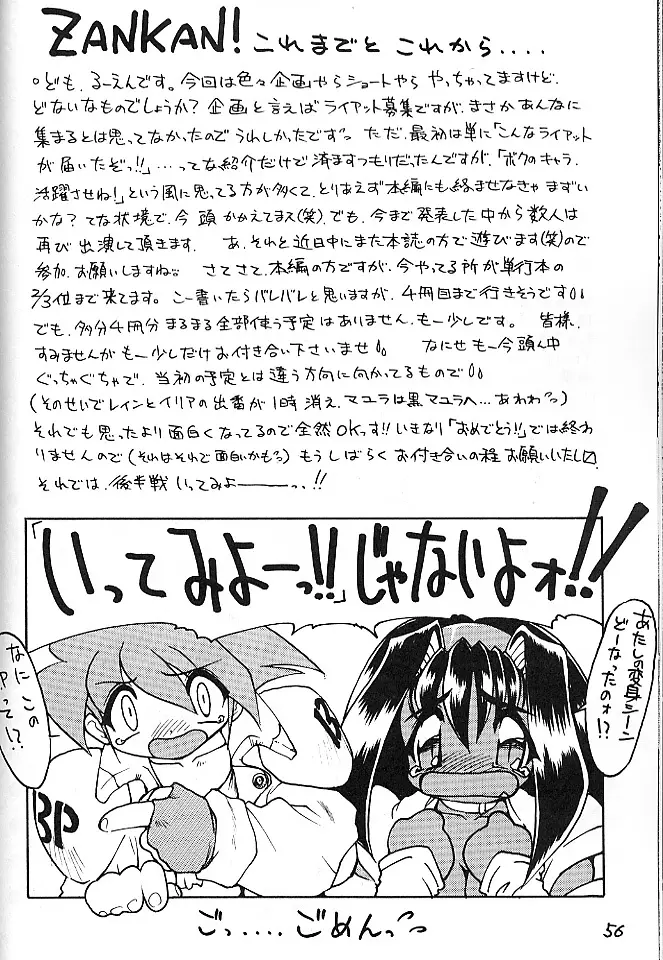 ZANKAN! これまでと これから....
ども、るーえんです。今回は色々企画やらショートやら やっちゃってますけど、
どないなものでしょうか? 企画と言えばライアット募集ですが、まさかあんなに
集まるとは思ってなかったのでうれしかったですっっ ただ、最初は単に「こんなライアット
が届いたぞっ!!」…ってな紹介だけで済ますつもりだったんですが、「ボクのキャラ、
活躍させね!」という風に思ってる方が多くて、とりあえず本編にも絡ませなきゃ まずい
かな? てな状況で、今 頭 かかえてまス(笑)。でも、今まで発表した中から数人は
再び出演して頂きます。 あ、それと近日中にまた本誌の方で遊びます(笑)ので
参加、お願いしますねっっ さてさて、本編の方ですが、今やってる所が単行本の
2/3位まで来てます。こー書いたらバレバレと思いますが、4冊目まで行きそうです
でも、多分4冊分まるまる全部使う予定はありません、もー少しです。 皆様、
すみませんが もー少しだけお付き合い下さいませ なにせ もー今頭ん中
ぐっちゃぐちゃで、当初の予定とは違う方向に向かってるもので
(そのせいでレインとイリアの出番が1時消え、マユラは黒マユラへ…あわわっっ)
それでも思ったより面白くなってるので全然OKっす!! いきなり「おめでとう!!」では終わ
りませんので(それはそれで面白いかもっっ) もうしばらく お付き合いの程 お願いいたし〼。
それでは、後半戦 いってみよーーっっ!!
「いってみよーっ!!」じゃないよォ!!
あたしの変身シーン
どーなったのォ!?
なに この
Pって!?
BP
B
ごっ....ごめんっっ
56